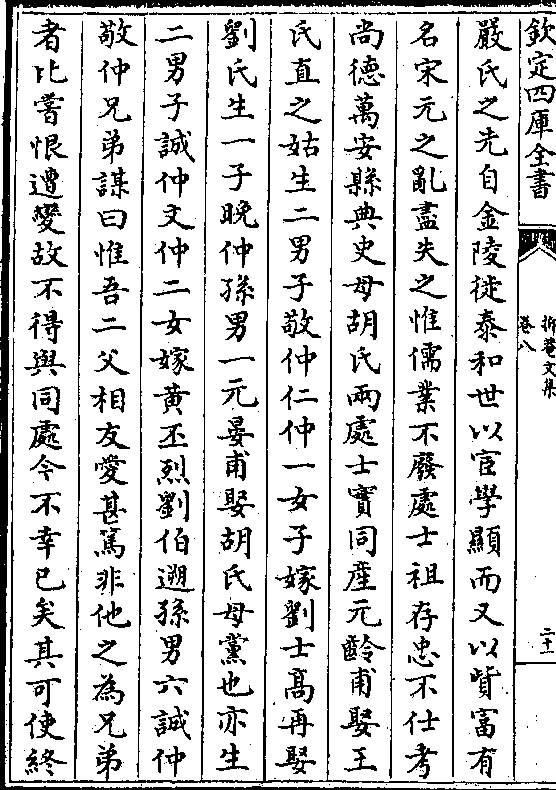 欽定四庫全書
卷八
二十一
嚴氏之先自金陵徙泰和世以宦學顯而又以貲富有
名宋元之亂盡失之惟儒業不廢處士祖存忠不仕考
尚德萬安縣典史母胡氏兩處士實同產元齡甫娶王
氏直之姑生二男子敬仲仁仲一女子嫁劉士高再娶
劉氏生一子晚仲孫男一元晏甫娶胡氏母黨也亦生
二男子誠仲文仲二女嫁黃丕烈劉伯遡孫男六誠仲
敬仲兄弟謀曰惟吾二父相友愛甚篤非他之為兄弟
者比嘗恨遭變故不得與同處今不幸已矣其可使終